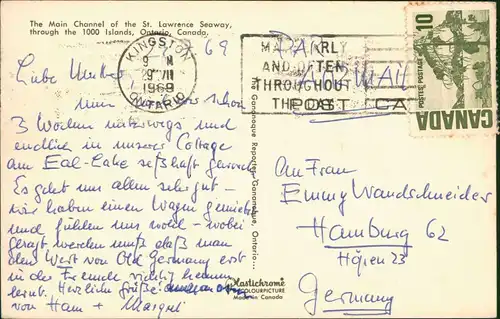 The Main Channel of the St. Lawrence Seaway,
through the 1000 Islands, Ontario, Canada.
69
KINGSTON
9 M
29 VII
1969
ONTARIO
MAIL EARLY
AND OFTEN
THROUGHOUT
THE DAY
PAR
AIR MAIL
POST CA
10
POSTES POSTAGE
CANADA
Liebe Mutter
nun schon
3 Wochen unterwegs und
endlich in unserer Cottage
am Eal-Lake seßhaft geworden
Es geht uns allen sehr gut –
wir haben einen Wagen gemietet
und fühlen uns wohl – wobei
gesagt werden muß daß man
den Wert von Old Germany erst
in der Fremde richtig kennen
lernt. Herzliche Grüße
von Ham + Margret
The Gananoque Reporter, Gananoque, Ontario...
Plastichrome
COLOURPICTURE
Made in Canada
An Frau
Emmy Wandschneider
Hamburg 62
23
Germany